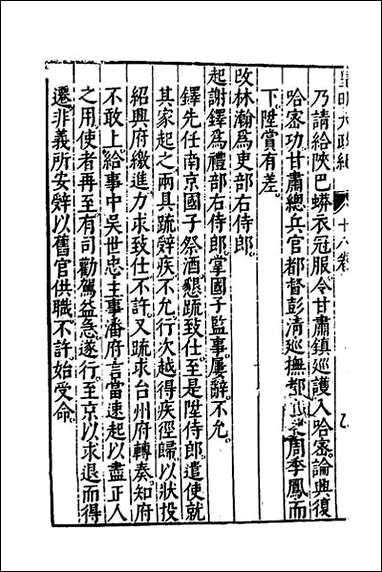 皇明大政紀 十八卷
乃請給陝巴蟒衣冠服令甘肅鎮巡護入哈密論興復
哈密功甘肅總兵官都督彭清巡撫都 周季鳳而
下陞賞有差
改林瀚爲吏部右侍郎
起謝鐸爲禮部右侍郎掌國子監事屢辭不允
鐸先任南京國子祭酒懇疏致仕至是陞侍郎遣使就
其家起之兩具疏辭疾不允行次越得疾徑歸以狀投
紹興府繳進力求致仕不許又疏求台州府轉奏知府
不敢上給事中吳世忠主事潘府言當速起以盡正人
之用使者再至有司勸駕益急遂行至京以求退而得
遷非義所安辭以舊官供職不許始受命